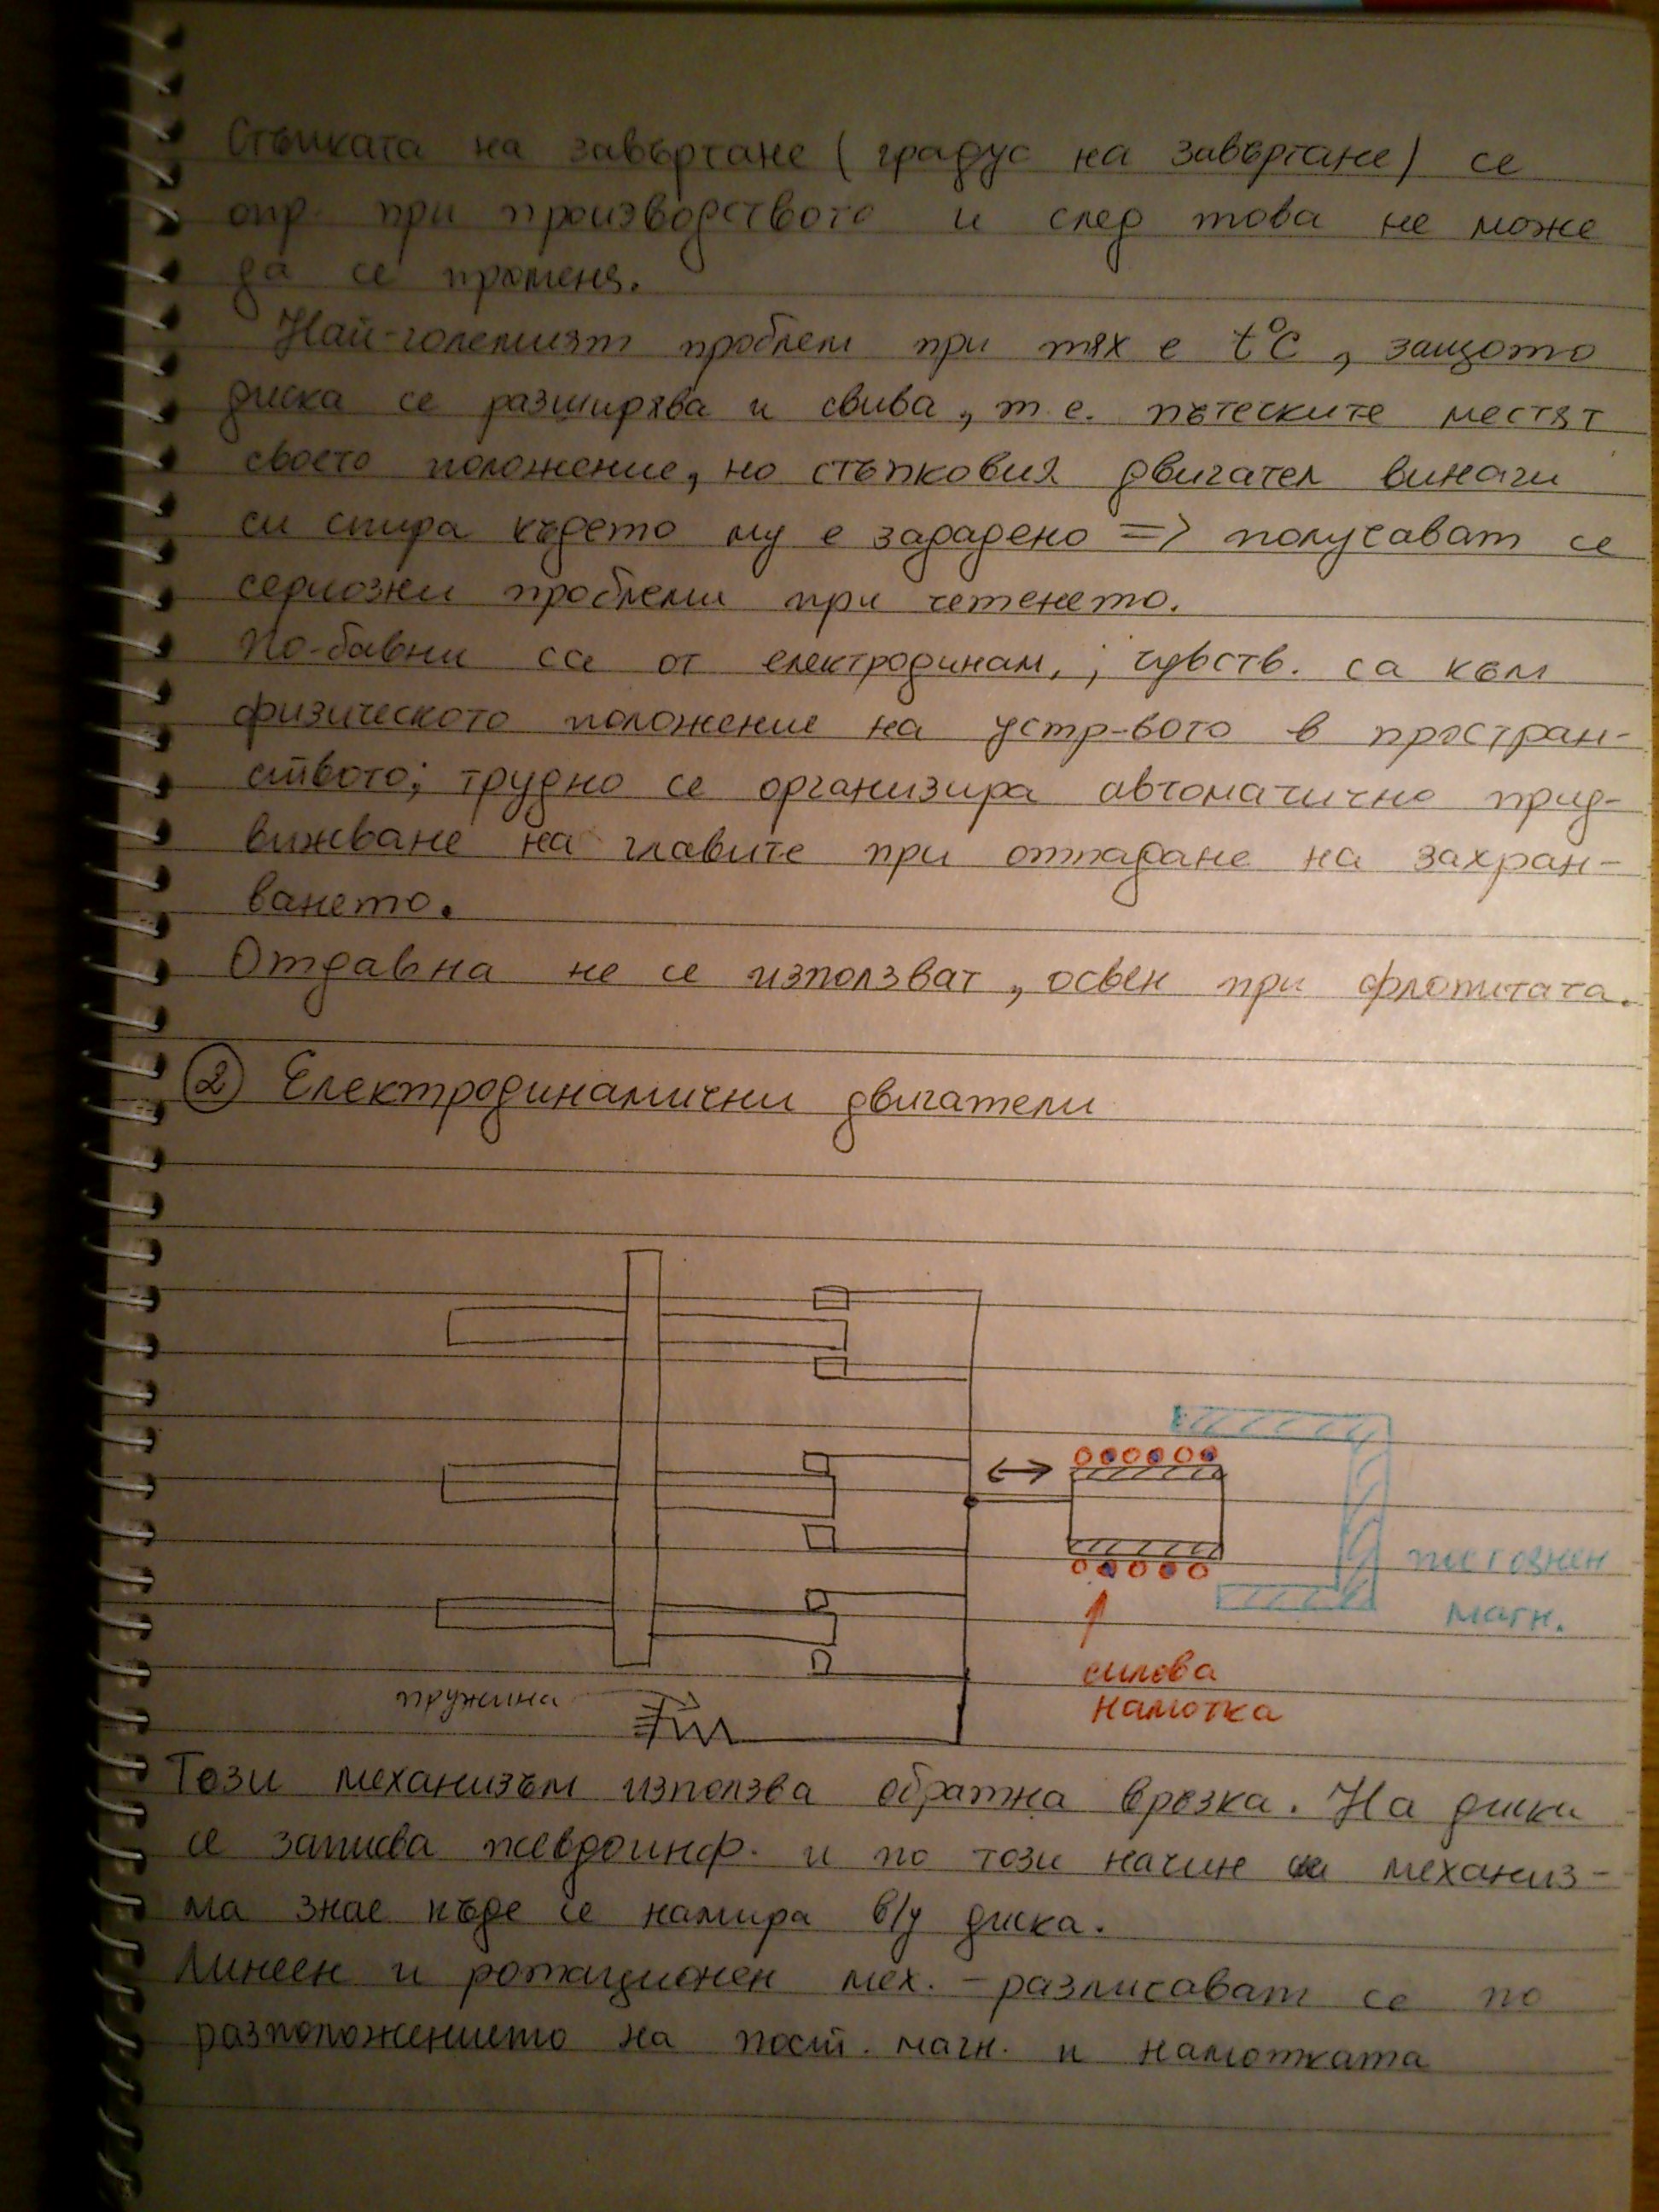 Стъпката на завъртане (градус на завъртане) се
опр. при производството и след това не може
да се променя.
Най-големият проблем при тях е t°C, защото
диска се разширява и свива, т.е. пътеските местят
своето положение, но стъпковия двигател винаги
си спира където му е зададено => получават се
сериозни проблеми при четенето.
По-бавни са от електродинам.; чувств. са към
физическото положение на устр-вото в простран-
ството; трудно се организира автоматично прид-
вижване на главите при отпадане на захран-
ването.
Отдавна не се използват, освен при флопитата.
2 Електродинамични двигатели
постоянен
магн.
силова
намотка
пружина
Този механизъм използва обратна връзка. На диска
се записва псевдоинф. и по този начин механиз-
ма знае къде се намира в/у диска.
Линеен и ротационен мех. - различават се по
разположението на пост. магн. и намотката